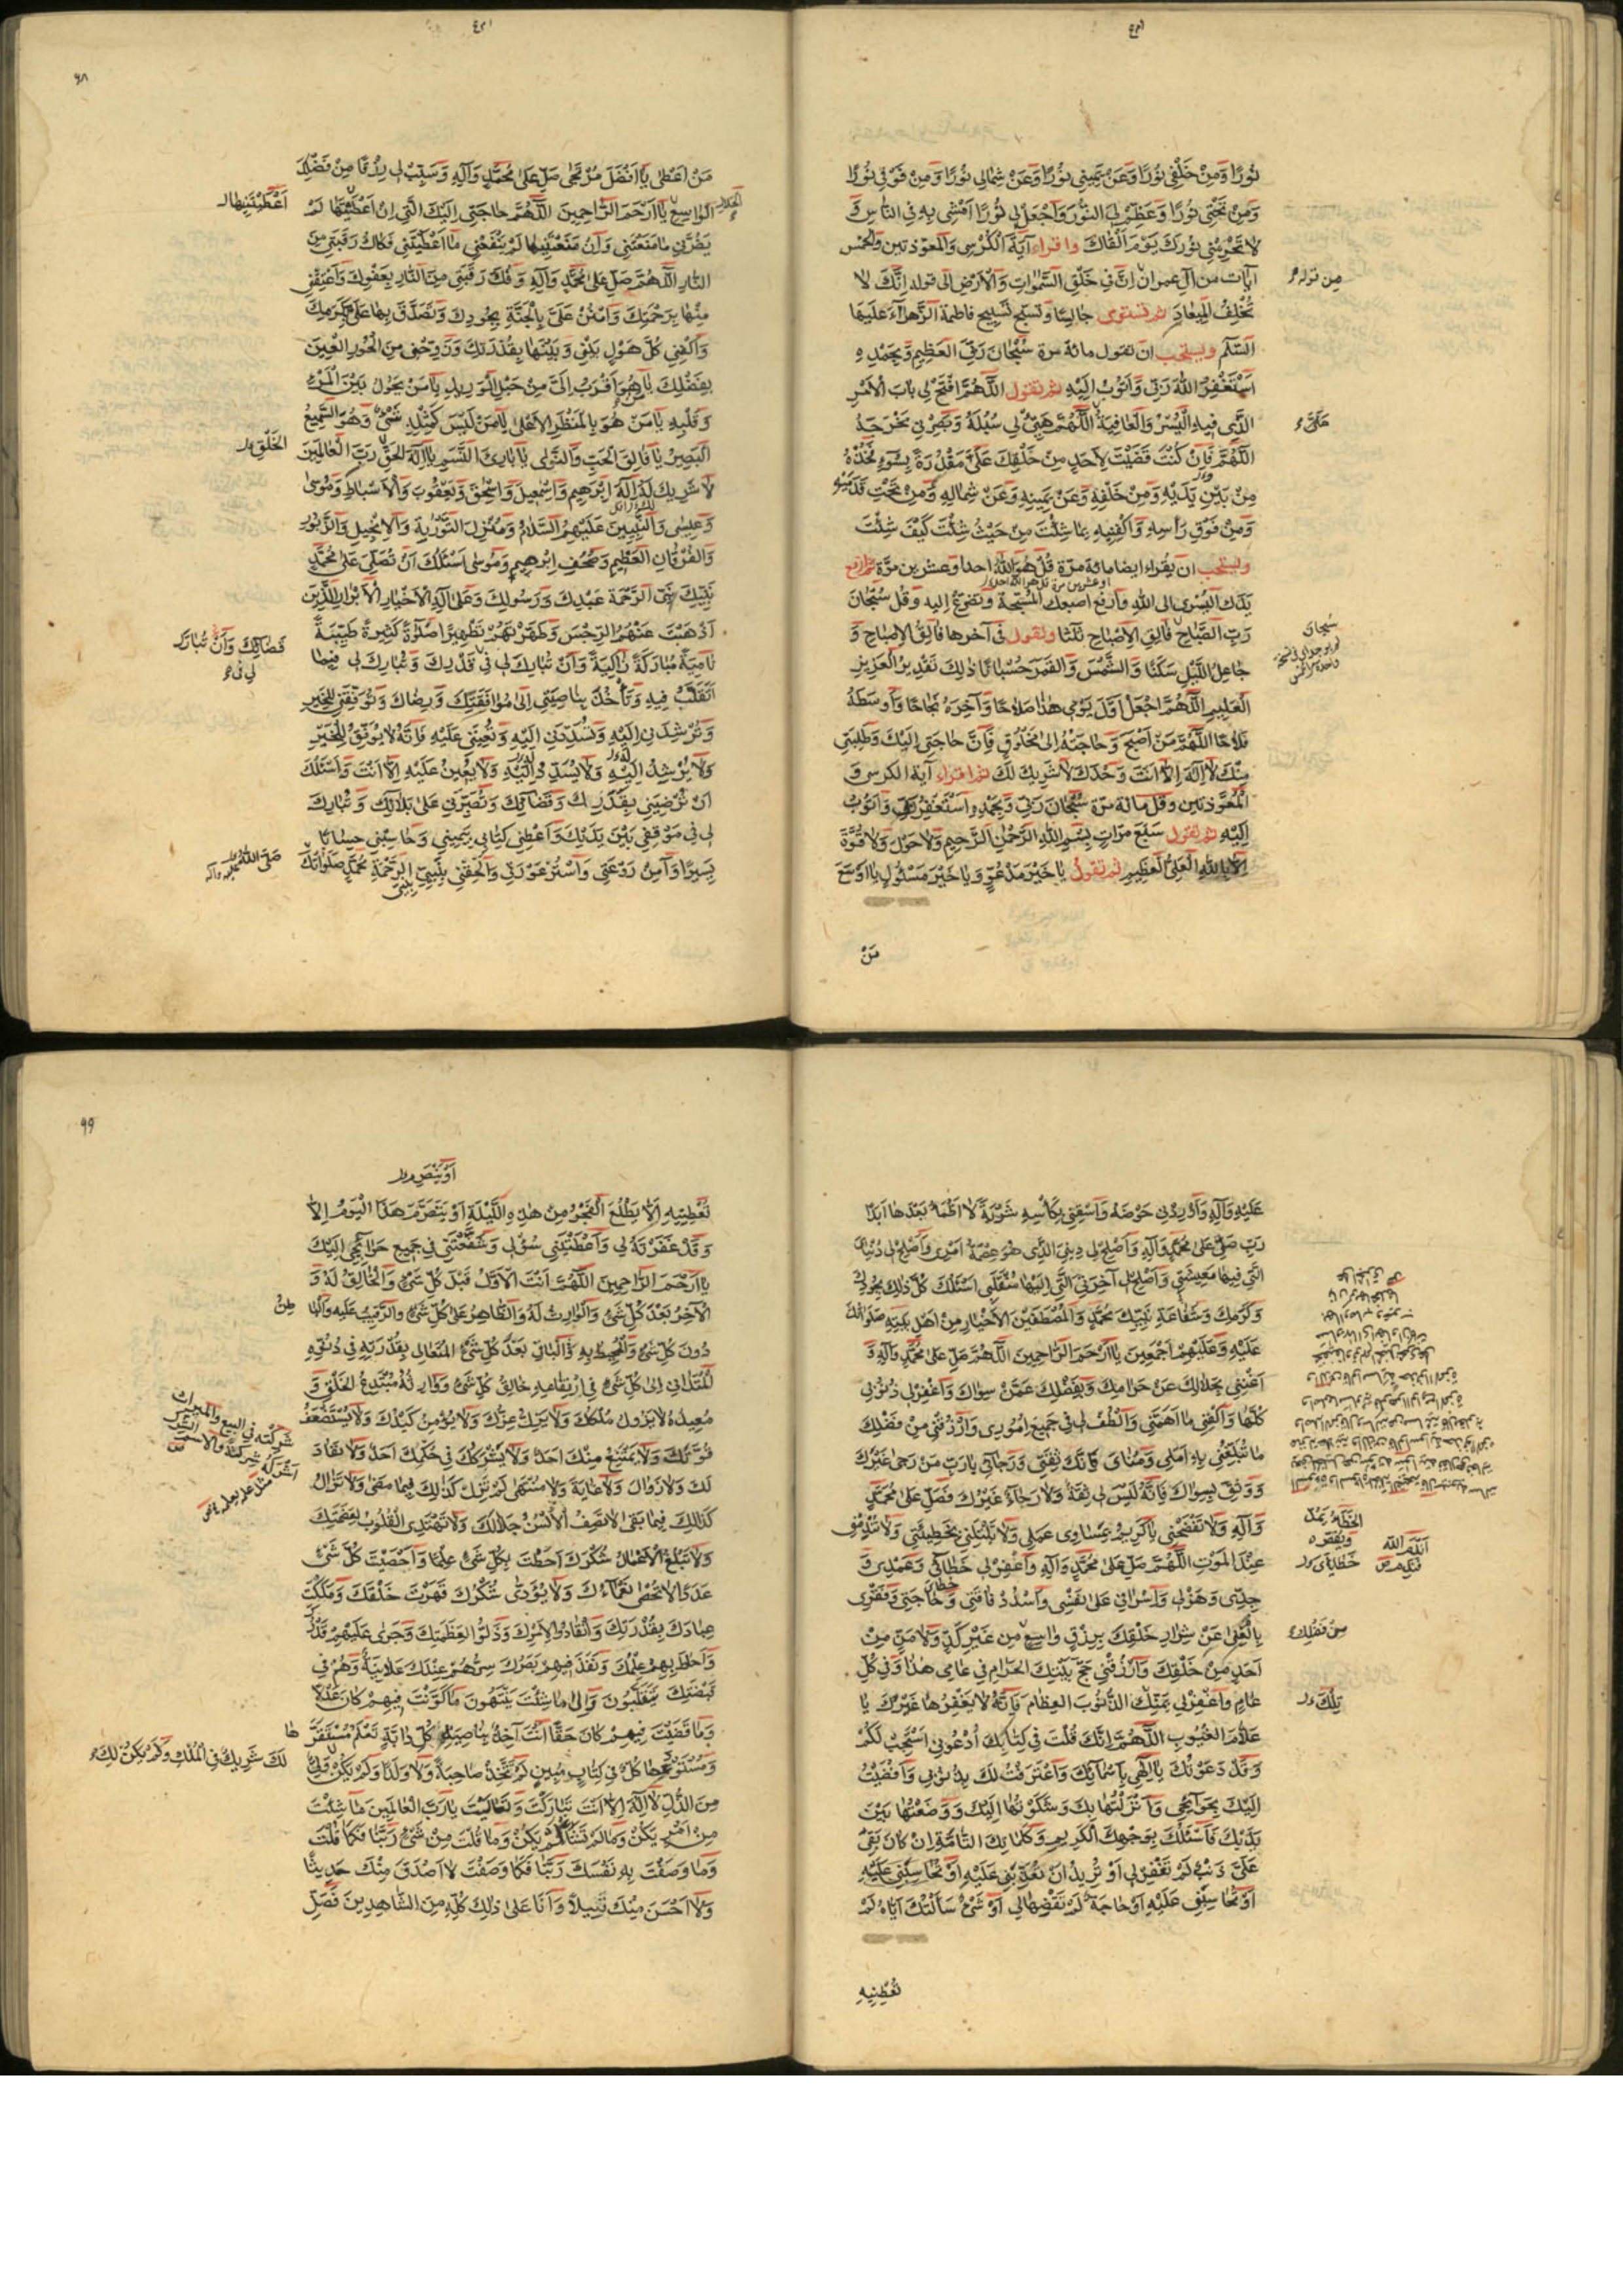 نُورًا وَمِنْ خَلْفِي نُورًا وَعَنْ يَمِينِي نُورًا وَعَنْ شِمَالِي نُورًا وَمِنْ فَوْقِي نُورًا
وَمِنْ تَحْتِي نُورًا وَعَظِّمْ لِيَ النُّورَ وَاجْعَلْ لِي نُورًا اَمْشِي بِهِ فِي النَّاسِ وَ
لَا تَحْرِمْنِي نُورَكَ يَوْمَ اَلْقَاكَ واقراء آيَةَ الْكُرْسِي وَالْمعوّذتين والْخَمْس
ايآت من آل عمران اِنَّ فِي خَلْقِ السَّمٰوَاتِ وَالْاَرْضِ الى قوله اِنَّكَ لَا
تُخْلِفُ الْمِيعَادَ ثم تستوى جالِسًا وتُسَبّح تَسْبِيح فاطمة الزَّهراءِ عَلَيهَا
السَّلَم ويستحب ان تقول مائة مرة سُبْحَانَ رَبِّيَ الْعَظِيمِ وَبِحَمْدِهِ
اَسْتَغْفِرُ اللّٰهَ رَبِّي وَاَتُوبُ اِلَيْهِ ثم تقول اَللّٰهُمَّ افْتَحْ لِي بَابَ الْاَمْرِ
الَّذِي فِيهِ الْيُسْرُ وَالْعَافِيَةُ اَللّٰهُمَّ هَيِّئْ لِي سُبُلَهُ وَبَصِّرْنِي مَخْرَجَهُ
اَللّٰهُمَّ فَاِنْ كُنْتَ قَضَيْتَ لِاَحَدٍ مِنْ خَلْقِكَ عَلَيَّ مَقْدُرَةً بِسُوءٍ فَخُذْهُ
مِنْ بَيْنِ يَدَيْهِ وَمِنْ خَلْفِهِ وَعَنْ يَمِينِهِ وَعَنْ شِمَالِهِ وَمِنْ تَحْتِ قَدَمَيْهِ
وَمِنْ فَوْقِ رَاْسِهِ وَاكْفِنِيهِ بِمَا شِئْتَ مِنْ حَيْثُ شِئْتَ كَيْفَ شِئْتَ
ويستحب ان يقراء ايضا مائة مرّة قُلْ هُوَ اللّٰهُ احد او عشرين مرّة ثم ارفع
يَدَك اليُسْرى الى اللّٰهِ وارفع اصبعك الْمُسَبّحة وتضرّع اليه وقل سُبْحَانَ
رَبِّ الصَّبَاحِ فَالِقِ الْاِصْبَاحِ ثلثا وتقول فى آخرها فَالِقُ الْاِصْبَاحِ وَ
جَاعِلُ اللَّيْلِ سَكَنًا وَالشَّمْسَ وَالْقَمَرَ حُسْبَانًا ذٰلِكَ تَقْدِيرُ الْعَزِيزِ
الْعَلِيمِ اَللّٰهُمَّ اجْعَلْ اَوَّلَ يَوْمِي هٰذَا صَلَاحًا وَآخِرَهُ نَجَاحًا وَاَوْسَطَهُ
فَلَاحًا اَللّٰهُمَّ مَنْ اَصْبَحَ وَحَاجَتُهُ اِلٰى مَخْلُوقٍ فَاِنَّ حَاجَتِي اِلَيْكَ وَطَلِبَتِي
مِنْكَ لَا اِلٰهَ اِلَّا اَنْتَ وَحْدَكَ لَا شَرِيكَ لَكَ ثم اقراء آية الكرسى وَ
الْمُعَوّذتين وقل مائة مرّة سُبْحَانَ رَبِّي وَبِحَمْدِهِ اَسْتَغْفِرُ رَبِّي وَاَتُوبُ
اِلَيْهِ ثم تقول سَبْعَ مَرّاتٍ بِسْمِ اللّٰهِ الرَّحْمٰنِ الرَّحِيمِ وَلَا حَوْلَ وَلَا قُوَّةَ
اِلَّا بِاللّٰهِ الْعَلِيِّ الْعَظِيمِ ثم تقول يَا خَيْرَ مَدْعُوٍّ وَيَا خَيْرَ مَسْئُولٍ يَا اَوْسَعَ
مَنْ
من قوله
عَلَيَّ
سُبْحَانَ
٩٨
مَنْ اَعْطٰى يَا اَفْضَلَ مُرْتَجٰى صَلِّ عَلٰى مُحَمَّدٍ وَآلِهِ وَسَبِّبْ لِي رِزْقًا مِنْ فَضْلِكَ
الْوَاسِعِ يَا اَرْحَمَ الرَّاحِمِينَ اَللّٰهُمَّ حَاجَتِي اِلَيْكَ الَّتِي اِنْ اَعْطَيْتَهَا لَمْ
يَضُرَّنِي مَا مَنَعْتَنِي وَاِنْ مَنَعْتَنِيهَا لَمْ يَنْفَعْنِي مَا اَعْطَيْتَنِي فَكَاكُ رَقَبَتِي مِنَ
النَّارِ اَللّٰهُمَّ صَلِّ عَلٰى مُحَمَّدٍ وَآلِهِ وَفُكَّ رَقَبَتِي مِنَ النَّارِ بِعَفْوِكَ وَاَعْتِقْنِي
مِنْهَا بِرَحْمَتِكَ وَامْنُنْ عَلَيَّ بِالْجَنَّةِ بِجُودِكَ وَتَصَدَّقْ بِهَا عَلَيَّ بِكَرَمِكَ
وَاكْفِنِي كُلَّ هَوْلٍ بَيْنِي وَبَيْنَهَا بِقُدْرَتِكَ وَزَوِّجْنِي مِنَ الْحُورِ الْعِينِ
بِفَضْلِكَ يَا مَنْ هُوَ اَقْرَبُ اِلَيَّ مِنْ حَبْلِ الْوَرِيدِ يَا مَنْ يَحُولُ بَيْنَ الْمَرْءِ
وَقَلْبِهِ يَا مَنْ هُوَ بِالْمَنْظَرِ الْاَعْلٰى يَا مَنْ لَيْسَ كَمِثْلِهِ شَيْءٌ وَهُوَ السَّمِيعُ
الْبَصِيرُ يَا فَالِقَ الْحَبِّ وَالنَّوٰى يَا بَارِئَ النَّسَمِ يَا اِلٰهَ الْحَقِّ رَبَّ الْعَالَمِينَ
لَا شَرِيكَ لَهُ اِلٰهَ اِبْرٰهِيمَ وَاِسْمٰعِيلَ وَاِسْحٰقَ وَيَعْقُوبَ وَالْاَسْبَاطِ وَمُوسٰى
وَعِيسٰى وَالنَّبِيِّينَ عَلَيْهِمُ السَّلَامُ وَمُنْزِلَ التَّوْرٰيةِ وَالْاِنْجِيلِ وَالزَّبُورِ
وَالْفُرْقَانِ الْعَظِيمِ وَصُحُفِ اِبْرٰهِيمَ وَمُوسٰى اَسْئَلُكَ اَنْ تُصَلِّيَ عَلٰى مُحَمَّدٍ
نَبِيِّكَ نَبِيِّ الرَّحْمَةِ عَبْدِكَ وَرَسُولِكَ وَعَلٰى آلِهِ الْاَخْيَارِ الْاَبْرَارِ الَّذِينَ
اَذْهَبْتَ عَنْهُمُ الرِّجْسَ وَطَهَّرْتَهُمْ تَطْهِيرًا صَلٰوةً كَثِيرَةً طَيِّبَةً
نَامِيَةً مُبَارَكَةً زَاكِيَةً وَاَنْ تُبَارِكَ لِي فِي قَدَرِكَ وَتُبَارِكَ لِي فِيمَا
اَتَقَلَّبُ فِيهِ وَتَاْخُذَ بِنَاصِيَتِي اِلٰى مُوَافَقَتِكَ وَرِضَاكَ وَتُوَفِّقَنِي لِلْخَيْرِ
وَتُرْشِدَنِي اِلَيْهِ وَتُسَدِّدَنِي اِلَيْهِ وَتُعِينَنِي عَلَيْهِ فَاِنَّهُ لَا يُوَفِّقُ لِلْخَيْرِ
وَلَا يُرْشِدُ اِلَيْهِ وَلَا يُسَدِّدُ اِلَيْهِ وَلَا يُعِينُ عَلَيْهِ اِلَّا اَنْتَ وَاَسْئَلُكَ
اَنْ تُرْضِيَنِي بِقَدَرِكَ وَقَضَائِكَ وَتُصَبِّرَنِي عَلٰى بَلَائِكَ وَتُبَارِكَ
لِي فِي مَوْقِفِي بَيْنَ يَدَيْكَ وَاَعْطِنِي كِتَابِي بِيَمِينِي وَحَاسِبْنِي حِسَابًا
يَسِيرًا وَآمِنْ رَوْعَتِي وَاسْتُرْ عَوْرَتِي وَاَلْحِقْنِي بِنَبِيِّي نَبِيِّ الرَّحْمَةِ مُحَمَّدٍ صَلَوَاتُكَ
اَعْطَيْتَنِيهَا
الْحَلَالِ
الْخَلْقِ
قَضَائِكَ وَاَنْ تُبَارِكَ
لِي فِي
صَلَّى اللّٰهُ عليه وآله
عَلَيْهِ وَآلِهِ وَاَوْرِدْنِي حَوْضَهُ وَاسْقِنِي بِكَاْسِهِ شَرْبَةً لَا اَظْمَاُ بَعْدَهَا اَبَدًا
رَبِّ صَلِّ عَلٰى مُحَمَّدٍ وَآلِهِ وَاَصْلِحْ لِي دِينِيَ الَّذِي هُوَ عِصْمَةُ اَمْرِي وَاَصْلِحْ لِي دُنْيَايَ
الَّتِي فِيهَا مَعِيشَتِي وَاَصْلِحْ لِي آخِرَتِي الَّتِي اِلَيْهَا مُنْقَلَبِي اَسْئَلُكَ كُلَّ ذٰلِكَ بِجُودِكَ
وَكَرَمِكَ وَشَفَاعَةِ نَبِيِّكَ مُحَمَّدٍ وَالْمُصْطَفَيْنَ الْاَخْيَارِ مِنْ اَهْلِ بَيْتِهِ صَلَوَاتُكَ
عَلَيْهِ وَعَلَيْهِمْ اَجْمَعِينَ يَا اَرْحَمَ الرَّاحِمِينَ اَللّٰهُمَّ صَلِّ عَلٰى مُحَمَّدٍ وَآلِهِ وَ
اَغْنِنِي بِحَلَالِكَ عَنْ حَرَامِكَ وَبِفَضْلِكَ عَمَّنْ سِوَاكَ وَاغْفِرْ لِي ذُنُوبِي
كُلَّهَا وَاكْفِنِي مَا اَهَمَّنِي وَالْطُفْ لِي فِي جَمِيعِ اُمُورِي وَارْزُقْنِي مِنْ فَضْلِكَ
مَا تُبَلِّغُنِي بِهِ اَمَلِي وَمُنَايَ فَاَنْتَ ثِقَتِي وَرَجَائِي يَا رَبِّ مَنْ رَجٰى غَيْرَكَ
وَوَثِقَ بِسِوَاكَ فَاِنَّهُ لَيْسَ لِي ثِقَةٌ وَلَا رَجَاءٌ غَيْرُكَ فَصَلِّ عَلٰى مُحَمَّدٍ
وَآلِهِ وَلَا تَفْضَحْنِي يَا كَرِيمُ بِمَسَاوِي عَمَلِي وَلَا تَبْتَلِنِي بِخَطِيئَتِي وَلَا تُنْدِمْنِي
عِنْدَ الْمَوْتِ اَللّٰهُمَّ صَلِّ عَلٰى مُحَمَّدٍ وَآلِهِ وَاغْفِرْ لِي خَطَائِي وَعَمْدِي وَ
جِدِّي وَهَزْلِي وَاِسْرَافِي عَلٰى نَفْسِي وَاسْدُدْ فَاقَتِي وَحَاجَتِي وَفَقْرِي
بِالْغِنٰى عَنْ شِرَارِ خَلْقِكَ بِرِزْقٍ وَاسِعٍ مِنْ غَيْرِ كَدٍّ وَلَا مَنٍّ مِنْ
اَحَدٍ مِنْ خَلْقِكَ وَارْزُقْنِي حَجَّ بَيْتِكَ الْحَرَامِ فِي عَامِي هٰذَا وَفِي كُلِّ
عَامٍ وَاغْفِرْ لِي بِمَنِّكَ الذُّنُوبَ الْعِظَامَ فَاِنَّهُ لَا يَغْفِرُهَا غَيْرُكَ يَا
عَلَّامَ الْغُيُوبِ اَللّٰهُمَّ اِنَّكَ قُلْتَ فِي كِتَابِكَ اُدْعُونِي اَسْتَجِبْ لَكُمْ
وَقَدْ دَعَوْتُكَ يَا اِلٰهِي بِاَسْمَائِكَ وَاعْتَرَفْتُ لَكَ بِذُنُوبِي وَاَفْضَيْتُ
اِلَيْكَ بِحَوَائِجِي وَاَنْزَلْتُهَا بِكَ وَشَكَوْتُهَا اِلَيْكَ وَوَضَعْتُهَا بَيْنَ
يَدَيْكَ فَاَسْئَلُكَ بِوَجْهِكَ الْكَرِيمِ وَكَلِمَاتِكَ التَّامَّةِ اِنْ كَانَ بَقِيَ
عَلَيَّ ذَنْبٌ لَمْ تَغْفِرْهُ لِي اَوْ تُرِيدُ اَنْ تُعَذِّبَنِي عَلَيْهِ اَوْ تُحَاسِبَنِي عَلَيْهِ
اَوْ تُحَاسِبَنِي عَلَيْهِ اَوْ حَاجَةٌ لَمْ تَقْضِهَا لِي اَوْ شَيْءٌ سَاَلْتُكَ اِيَّاهُ لَمْ
تُعْطِنِيهِ
مِنْ فَضْلِكَ
تِلْكَ
٩٩
اَوْ يَنْقَضِيَ
تُعْطِنِيهِ اَنْ لَا يَطْلُعَ الْفَجْرُ مِنْ هٰذِهِ اللَّيْلَةِ اَوْ يَتَصَرَّمَ هٰذَا الْيَوْمُ اِلَّا
وَقَدْ غَفَرْتَهُ لِي وَاَعْطَيْتَنِي سُؤْلِي وَشَفَّعْتَنِي فِي جَمِيعِ حَوَائِجِي اِلَيْكَ
يَا اَرْحَمَ الرَّاحِمِينَ اَللّٰهُمَّ اَنْتَ الْاَوَّلُ قَبْلَ كُلِّ شَيْءٍ وَالْخَالِقُ لَهُ وَ
الْآخِرُ بَعْدَ كُلِّ شَيْءٍ وَالْوَارِثُ لَهُ وَالظَّاهِرُ عَلٰى كُلِّ شَيْءٍ وَالرَّقِيبُ عَلَيْهِ وَالْبَا
طِنُ
دُونَ كُلِّ شَيْءٍ وَالْمُحِيطُ بِهِ وَالْبَاقِي بَعْدَ كُلِّ شَيْءٍ الْمُتَعَالِي بِقُدْرَتِهِ فِي دُنُوِّهِ
الْمُتَدَانِي اِلٰى كُلِّ شَيْءٍ فِي ارْتِفَاعِهِ خَالِقُ كُلِّ شَيْءٍ وَوَارِثُهُ مُبْتَدِعُ الْخَلْقِ وَ
مُعِيدُهُ لَا يَزُولُ مُلْكُكَ وَلَا يَذِلُّ عِزُّكَ وَلَا يُؤْمَنُ كَيْدُكَ وَلَا تُسْتَضْعَفُ
قُوَّتُكَ وَلَا يَمْتَنِعُ مِنْكَ اَحَدٌ وَلَا يَشْرَكُكَ فِي حُكْمِكَ اَحَدٌ وَلَا نَفَادَ
لَكَ وَلَا زَوَالَ وَلَا غَايَةَ وَلَا مُنْتَهٰى لَمْ تَزَلْ كَذٰلِكَ فِيمَا مَضٰى وَلَا تَزَالُ
كَذٰلِكَ فِيمَا بَقِيَ لَا تَصِفُ الْاَلْسُنُ جَلَالَكَ وَلَا تَهْتَدِي الْقُلُوبُ لِعَظَمَتِكَ
وَلَا تَبْلُغُ الْاَعْمَالُ شُكْرَكَ اَحَطْتَ بِكُلِّ شَيْءٍ عِلْمًا وَاَحْصَيْتَ كُلَّ شَيْءٍ
عَدَدًا لَا تُحْصٰى نَعْمَاؤُكَ وَلَا يُؤَدّٰى شُكْرُكَ قَهَرْتَ خَلْقَكَ وَمَلَكْتَ
عِبَادَكَ بِقُدْرَتِكَ وَانْقَادُوا لِاَمْرِكَ وَذَلُّوا لِعَظَمَتِكَ وَجَرٰى عَلَيْهِمْ قَدَرُكَ
وَاَحَاطَ بِهِمْ عِلْمُكَ وَنَفَذَ فِيهِمْ بَصَرُكَ سِرُّهُمْ عِنْدَكَ عَلَانِيَةٌ وَهُمْ فِي
قَبْضَتِكَ يَتَقَلَّبُونَ وَاِلٰى مَا شِئْتَ يَنْتَهُونَ مَا كَوَّنْتَ فِيهِمْ كَانَ عَدْلًا
وَمَا قَضَيْتَ فِيهِمْ كَانَ حَقًّا اَنْتَ آخِذٌ بِنَاصِيَةِ كُلِّ دَابَّةٍ تَعْلَمُ مُسْتَقَرَّ
هَا
وَمُسْتَوْدَعَهَا كُلٌّ فِي كِتَابٍ مُبِينٍ لَمْ تَتَّخِذْ صَاحِبَةً وَلَا وَلَدًا وَلَمْ يَكُنْ
لَكَ شَرِيكٌ فِي الْمُلْكِ وَلَمْ يَكُنْ لَكَ
مِنَ الذُّلِّ لَا اِلٰهَ اِلَّا اَنْتَ تَبَارَكْتَ وَتَعَالَيْتَ يَا رَبَّ الْعَالَمِينَ مَا شِئْتَ
مِنْ اَمْرٍ يَكُنْ وَمَا لَمْ تَشَاْ لَمْ يَكُنْ وَمَا قُلْتَ مِنْ شَيْءٍ رَبَّنَا فَكَمَا قُلْتَ
وَمَا وَصَفْتَ بِهِ نَفْسَكَ رَبَّنَا فَكَمَا وَصَفْتَ لَا اَصْدَقَ مِنْكَ حَدِيثًا
وَلَا اَحْسَنَ مِنْكَ قِيلًا وَاَنَا عَلٰى ذٰلِكَ كُلِّهِ مِنَ الشَّاهِدِينَ فَصَلِّ